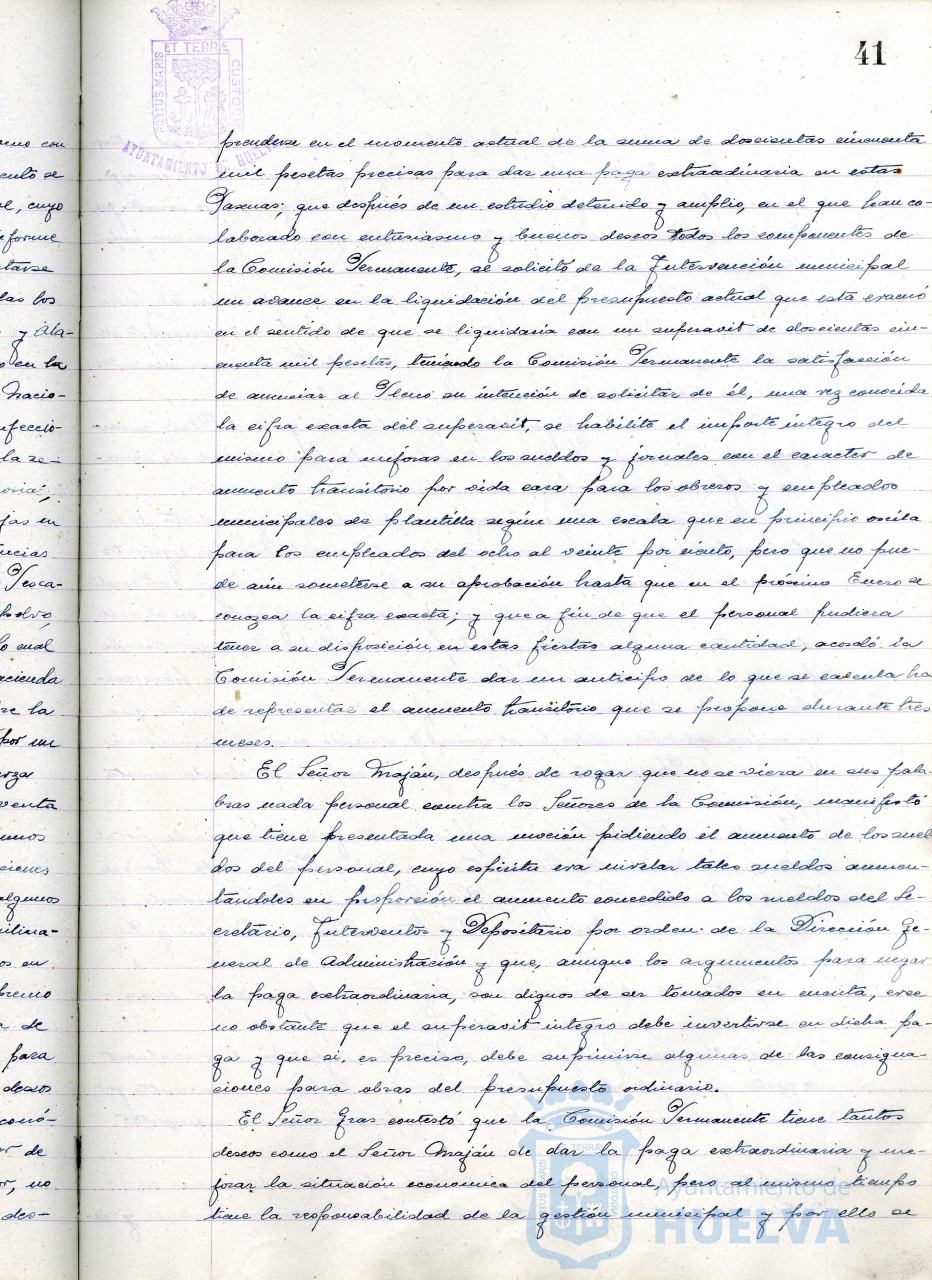 41
PORTUS MARIS ET TERRÆ CUSTODIA
AYUNTAMIENTO DE HUELVA
prenderse en el momento actual de la suma de doscientas cincuenta
mil pesetas precisas para dar una paga extraordinaria en estas
Pascuas; que después de un estudio detenido y amplio, en el que han co-
laborado con entusiasmo y buenos deseos todos los componentes de
la Comisión Permanente, se solicitó de la Intervención municipal
un avance en la liquidación del presupuesto actual que esta evacuó
en el sentido de que se liquidaria con un superavit de doscientas cin-
cuenta mil pesetas, teniendo la Comisión Permanente la satisfacción
de anunciar al Pleno su intención de solicitar de él, una vez conocida
la cifra exacta del superavit, se habilite el importe integro del
mismo para mejoras en los sueldos y jornales con el caracter de
aumento transitorio por vida cara para los obreros y empleados
municipales de plantilla según una escala que en principio oscila
para los empleados del ocho al veinte por ciento, pero que no pue-
de aún someterse a su aprobación hasta que en el próximo Enero se
conozca la cifra exacta; y que a fin de que el personal pudiera
tener a su disposición en estas fiestas alguna cantidad, acordó la
Comisión Permanente dar un anticipo de lo que se calcula ha
de representar el aumento transitorio que se propone durante tres
meses.
El Señor Maján, después de rogar que no se viera en sus pala-
bras nada personal contra los Señores de la Comisión, manifestó
que tiene presentada una moción pidiendo el aumento de los suel
dos del personal, cuyo espíritu era nivelar tales sueldos aumen-
tándoles en proporción el aumento concedido a los sueldos del Se-
cretario, Interventor y Depositario por orden de la Dirección Ge-
neral de Administración y que, aunque los argumentos para negar
la paga extraordinaria, son dignos de ser tomados en cuenta, cree
no obstante que el superavit integro debe invertirse en dicha pa-
ga y que si, es preciso, debe suprimirse algunas de las consigna-
ciones para obras del presupuesto ordinario.
El Señor Gras contestó que la Comisión Permanente tiene tantos
deseos como el Señor Maján de dar la paga extraordinaria y me-
jorar la situación economica del personal, pero al mismo tiempo
tiene la responsabilidad de la gestión municipal y por ello se
Ayuntamiento de
HUELVA